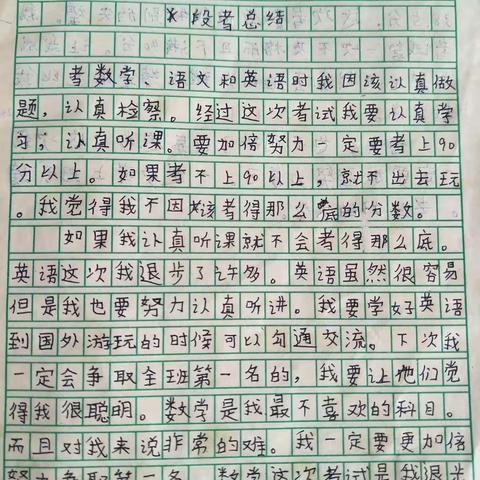 段考总结
考数学、语文和英语时我因该认真做
题，认真检察。经过这次考试我要认真学
习；认真听课。要加倍努力一定要考上90
分以上。如果考不上90以上，就不出去玩
。我觉得我不因该考得那么底的分数。
如果我认真听课就不会考得那么底。
英语这次我退步了许多。英语虽然很容易
但是我也要努力认真听讲。我要学好英语
到国外游玩的时候可以勾通交流。下次我
一定会争取全班第一名的，我要让他们觉
得我很聪明。数学是我最不喜欢的科目。
而且对我来说非常的难。我一定要更加倍
努力争取第一名。数学这次考试是我退步